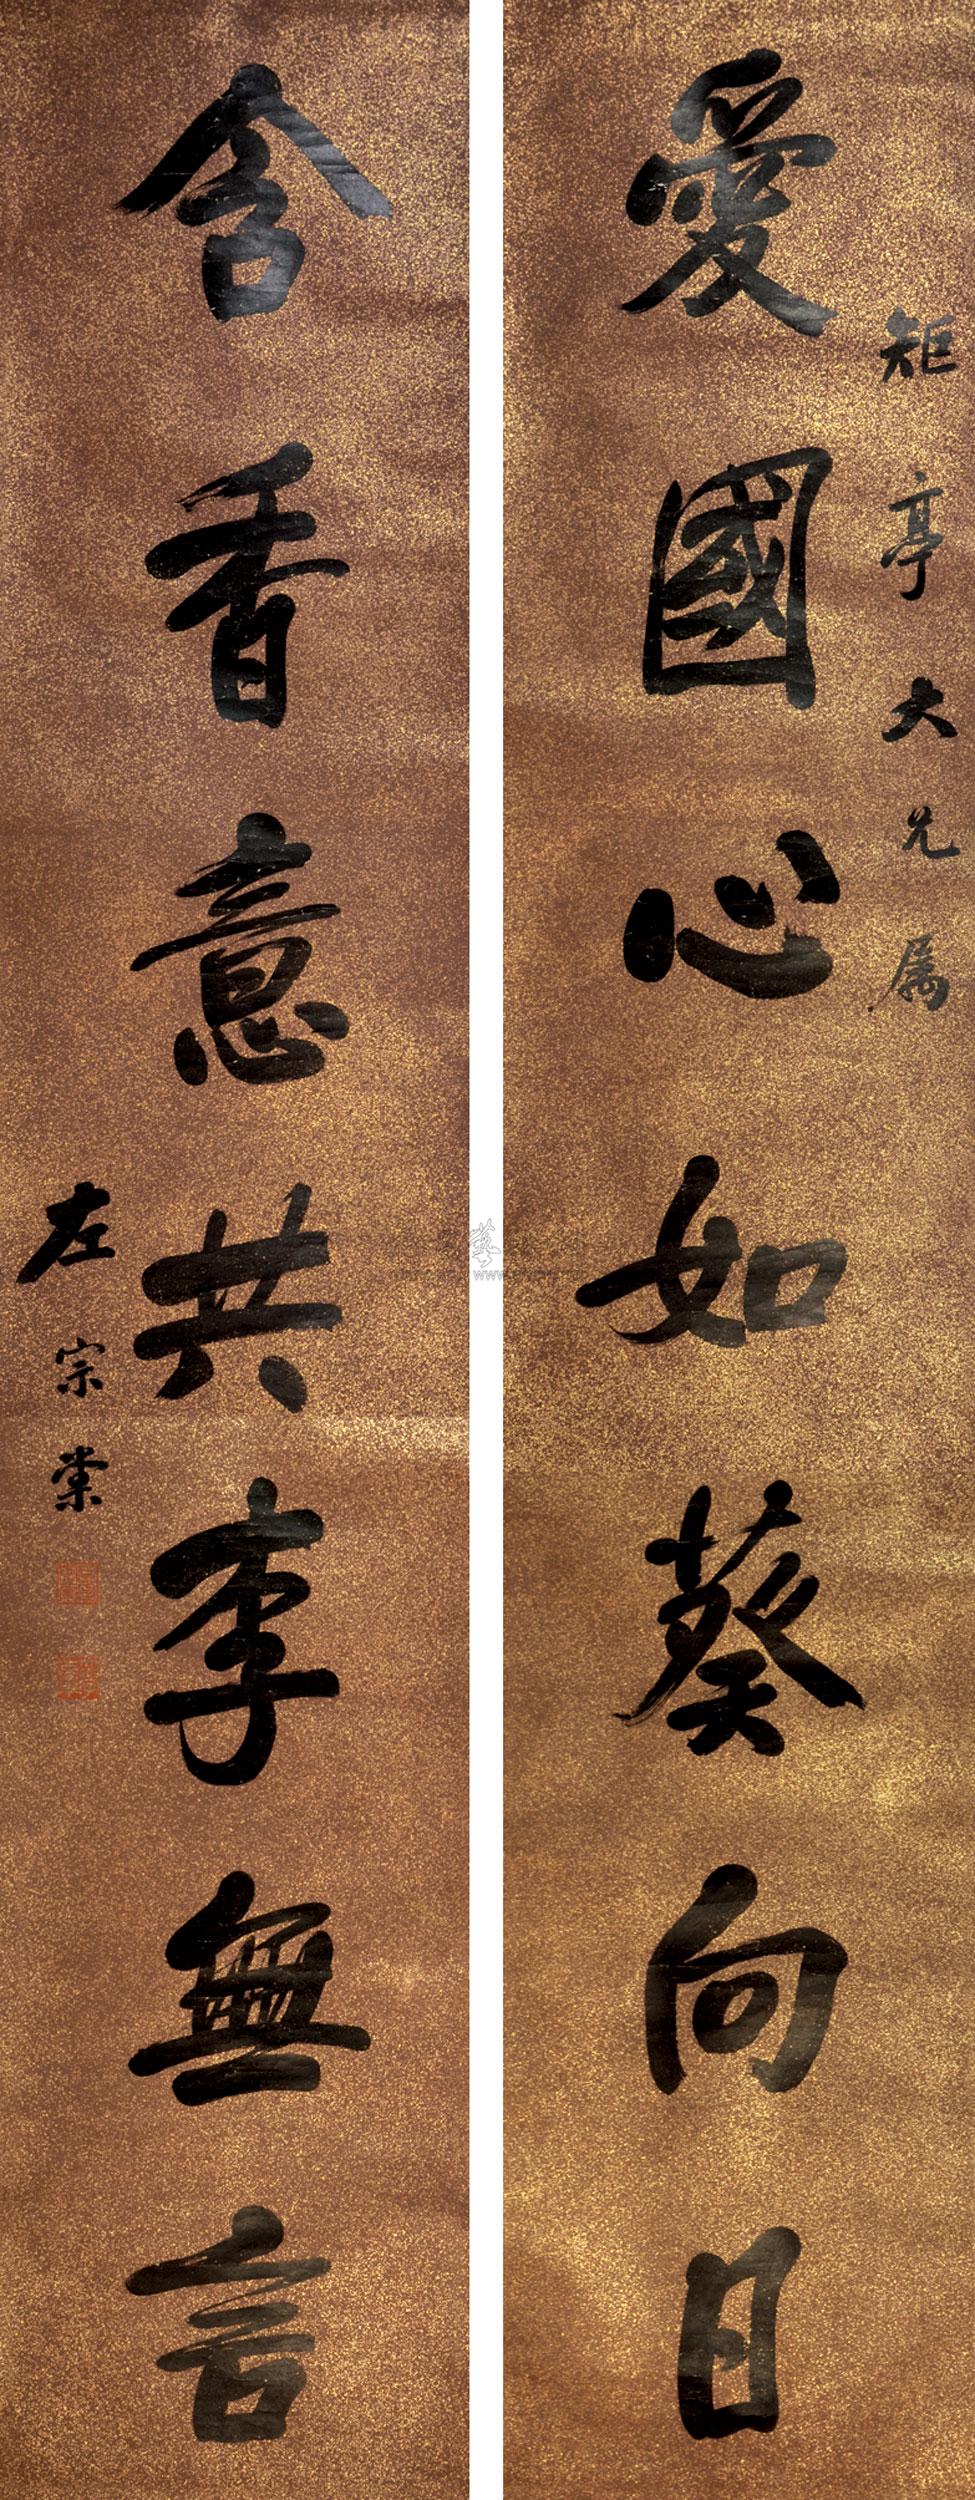 矩亭大兄属
愛國心如葵向日
含香意共李無言
左宗棠
藝